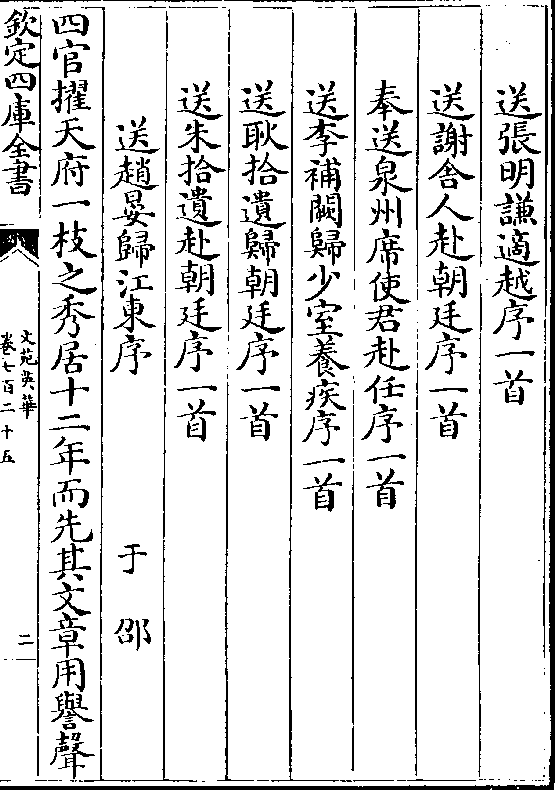 送張明謙適越序一首
送謝舍人赴朝廷序一首
奉送泉州席使君赴任序一首
送李補闕歸少室養疾序一首
送耿拾遺歸朝廷序一首
送朱拾遺赴朝廷序一首
送趙晏歸江東序 于邵
四官擢天府一枝之秀居十二年而先其文章用譽聲
欽定四庫全書
文苑英華
卷七百二十五
二